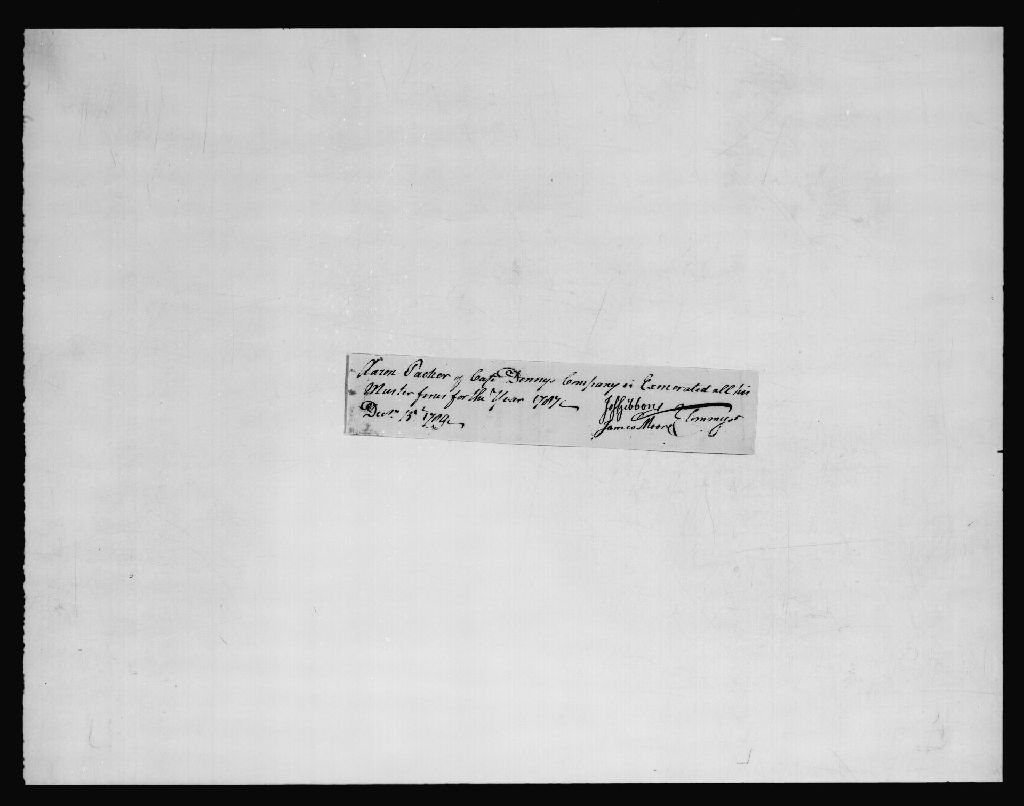 Aaron Packer of Capt Dennys Company is Exonerated all his
Muster fines for the Year 1787
Jos Gibbons
Decr 15th 1789 Commrs
James Moore